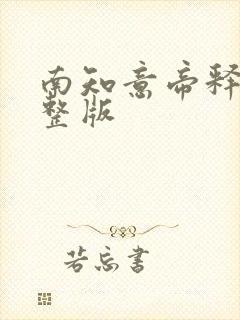 南知意帝释
整版
若忘书